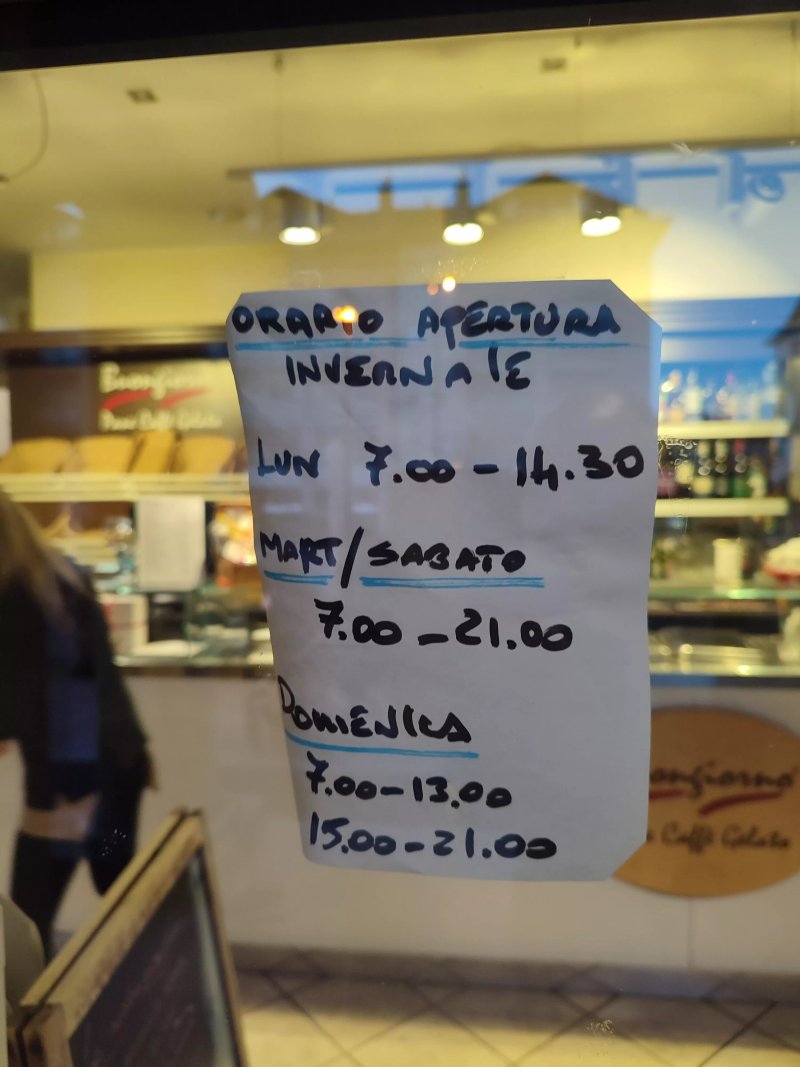 ORARIO APERTURA
INVERNALE
LUN 7.00 - 14.30
MART/SABATO
7.00 - 21.00
DOMENICA
7.00 - 13.00
15.00 - 21.00
Buongiorno
Pane Caffè Gelato
ongiorno
Caffè Gelato